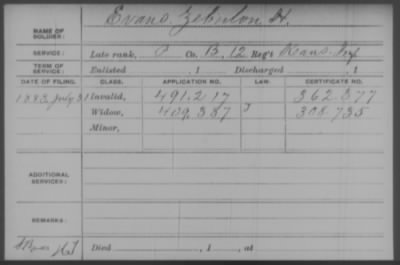 NAME OF SOLDIER: Evans, Zebulon H.
SERVICE: Late rank, P Co. B, 12 Reg't Kans. Inf
TERM OF SERVICE: Enlisted , 1 Discharged , 1
DATE OF FILING. CLASS. APPLICATION NO. LAW. CERTIFICATE NO.
1883 July 31 Invalid, 491.217 362.377
Widow, 409,387 J 308.735
Minor,
ADDITIONAL SERVICES:
REMARKS:
Died , 1 , at